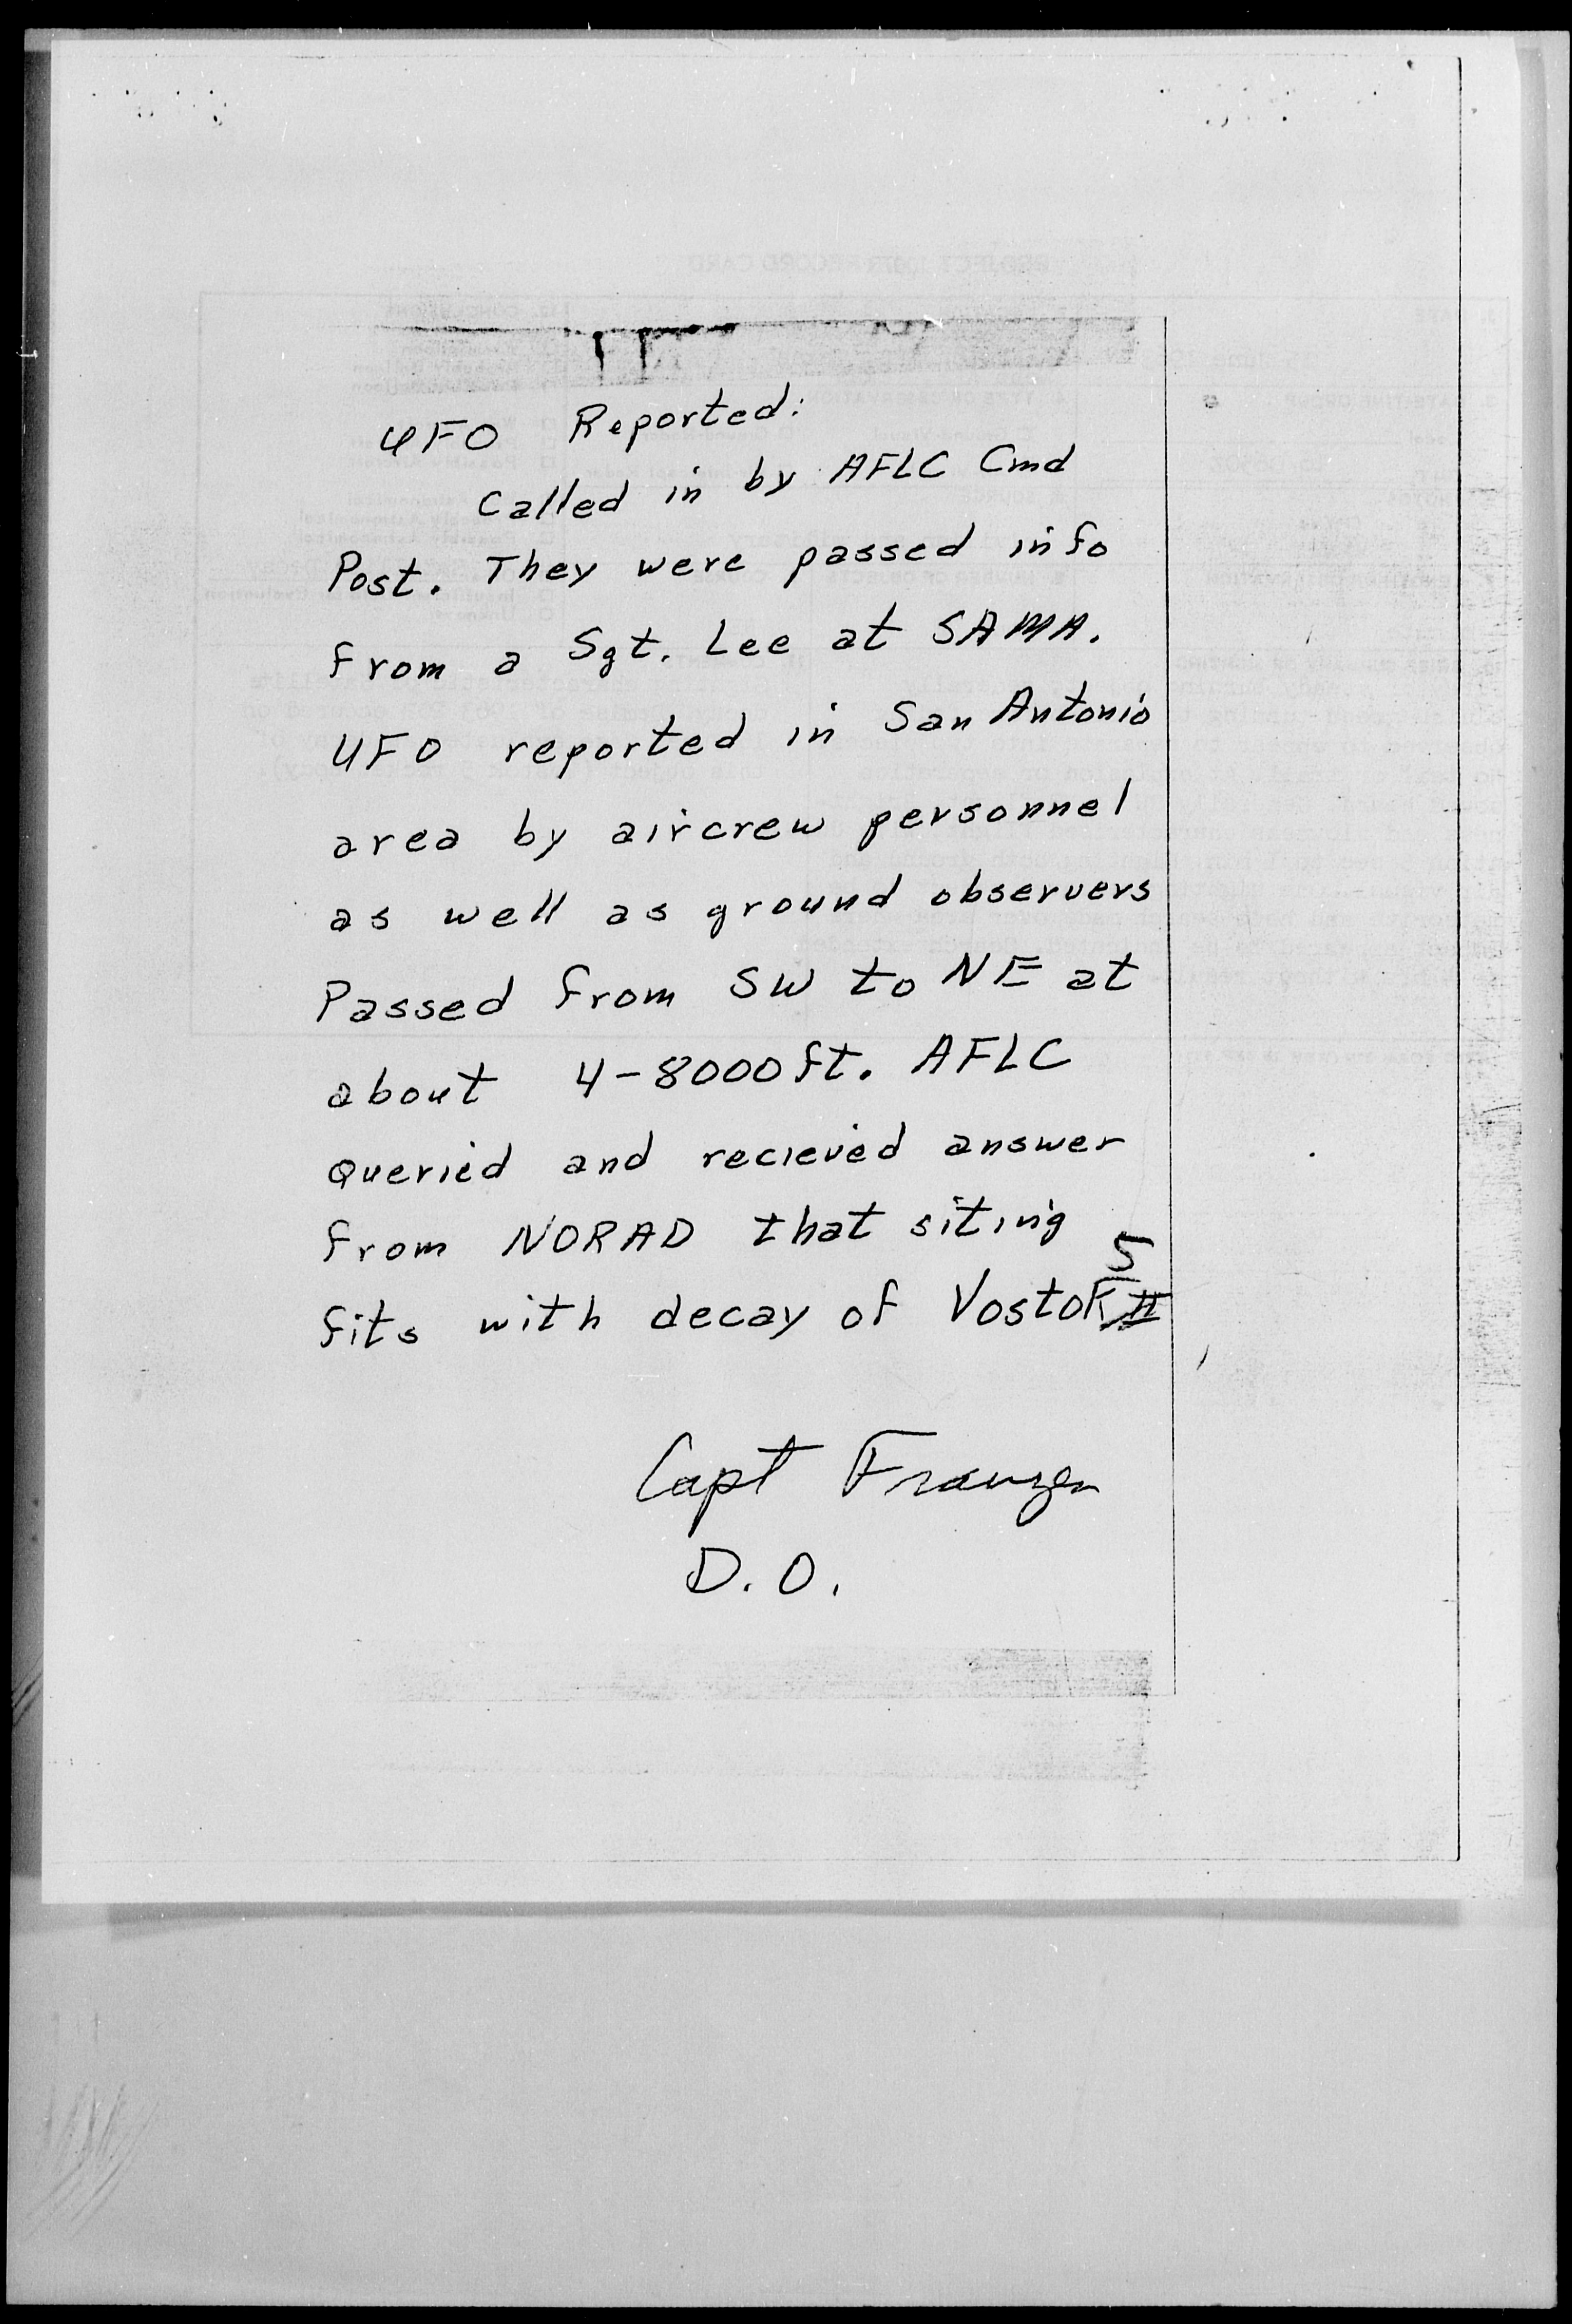 UFO Reported:
Called in by AFLC Cmd
Post. They were passed info
from a Sgt. Lee at SAMA.
UFO reported in San Antonio
area by aircrew personnel
as well as ground observers
Passed from SW to NE at
about 4-8000 ft. AFLC
queried and recieved answer
from NORAD that siting
fits with decay of Vostok 5
Capt Franzen
D.O.